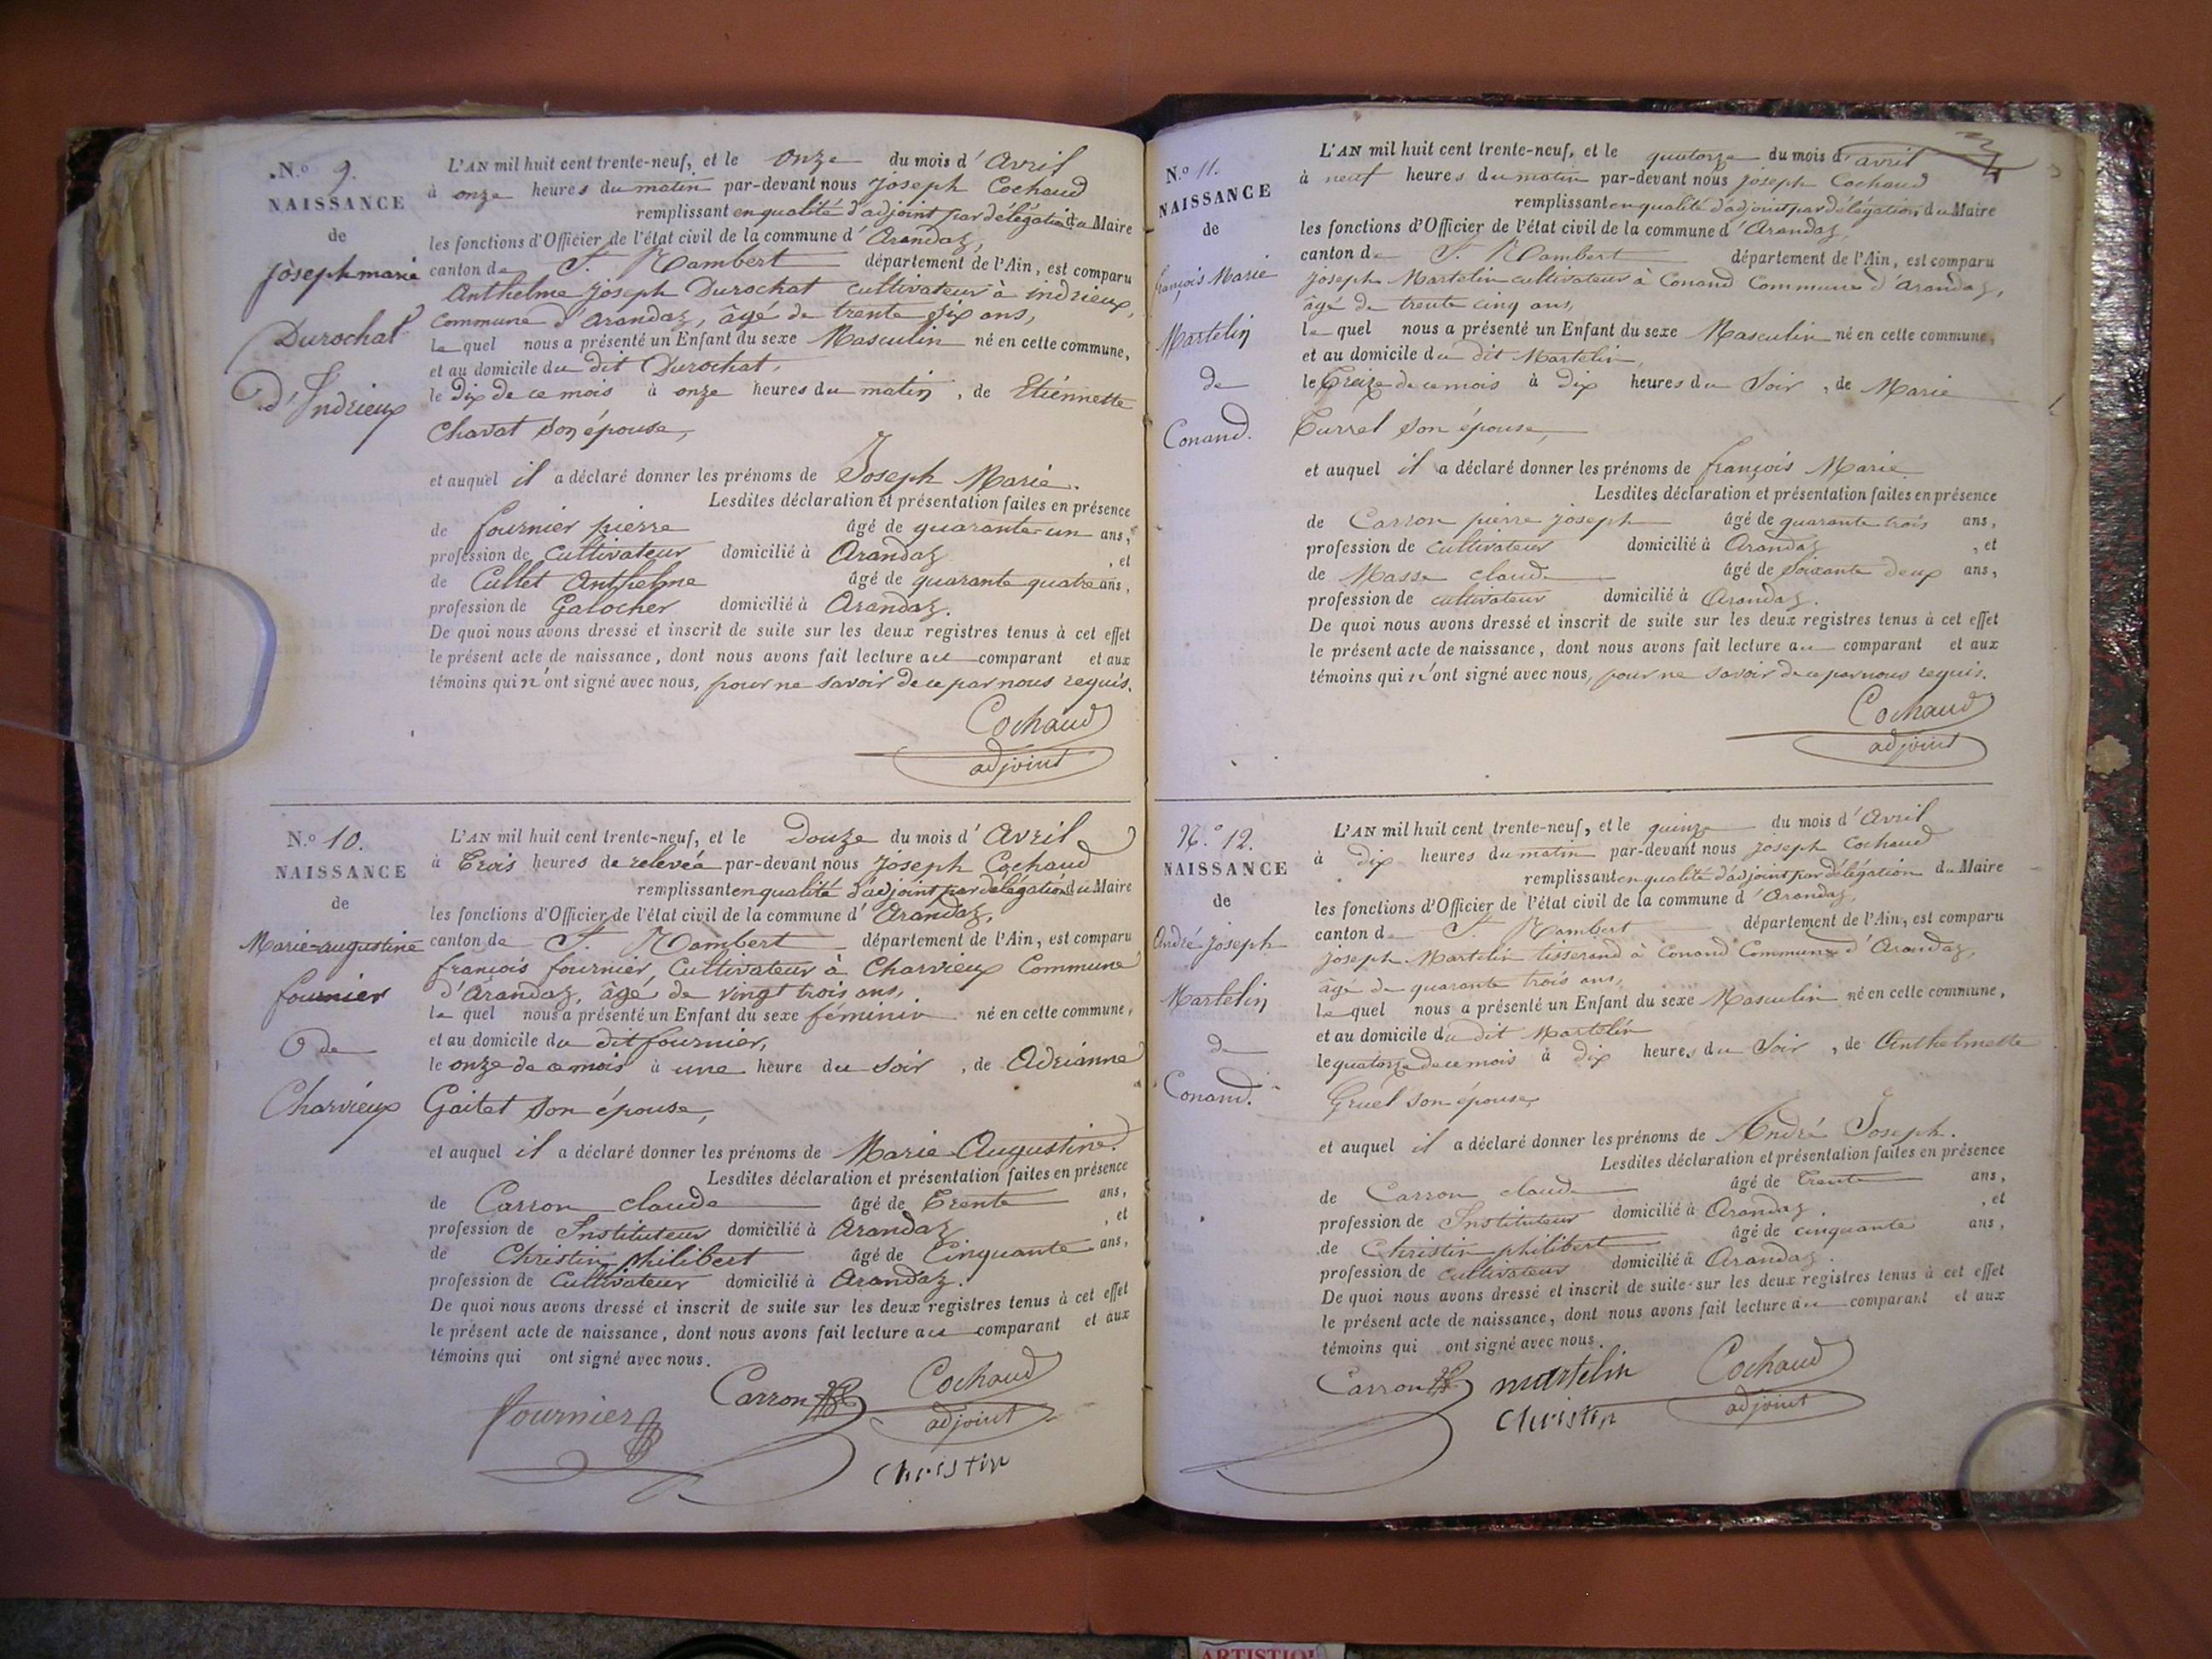 N.o 9.
NAISSANCE
de
Joseph marie
Durochat
d'Indrieux
L'AN mil huit cent trente-neuf, et le onze du mois d'Avril
à onze heures du matin par-devant nous Joseph Cochaud
remplissant en qualité d'adjoint par délégation du Maire
les fonctions d'Officier de l'état civil de la commune d'Arandaz,
canton de St. Rambert département de l'Ain, est comparu
Anthelme Joseph Durochat cultivateur à indrieux,
Commune d'Arandaz, âgé de trente six ans,
le quel nous a présenté un Enfant du sexe Masculin né en cette commune,
et au domicile du dit Durochat,
le dix de ce mois à onze heures du matin, de Etiennette
Chavat son épouse,
et auquel il a déclaré donner les prénoms de Joseph Marie.
Lesdites déclaration et présentation faites en présence
de fournier pierre âgé de quarante-un ans,
profession de Cultivateur domicilié à Arandaz, et
de Cullet Anthelme âgé de quarante quatre ans,
profession de Galocher domicilié à Arandaz.
De quoi nous avons dressé et inscrit de suite sur les deux registres tenus à cet effet
le présent acte de naissance, dont nous avons fait lecture au comparant et aux
témoins qui n'ont signé avec nous, pour ne savoir de ce par nous requis.
Cochaud
adjoint
N.o 10.
NAISSANCE
de
Marie-augustine
fournier
de
Charvieux
L'AN mil huit cent trente-neuf, et le Douze du mois d'Avril
à Trois heures de relevéé par-devant nous Joseph Cochaud
remplissant en qualité d'adjoint par délégation du Maire
les fonctions d'Officier de l'état civil de la commune d'Arandaz,
canton de St. Rambert département de l'Ain, est comparu
françois fournier, Cultivateur à Charvieux Commune
d'Arandaz, âgé de vingt trois ans,
le quel nous a présenté un Enfant du sexe féminin né en cette commune,
et au domicile du dit fournier,
le onze de ce mois à une heure du soir, de Adrianne
Gaitet son épouse,
et auquel il a déclaré donner les prénoms de Marie Augustine.
Lesdites déclaration et présentation faites en présence
de Carron claude âgé de Trente ans,
profession de Instituteur domicilié à Arandaz, et
de Christin philibert âgé de Cinquante ans,
profession de Cultivateur domicilié à Arandaz.
De quoi nous avons dressé et inscrit de suite sur les deux registres tenus à cet effet
le présent acte de naissance, dont nous avons fait lecture au comparant et aux
témoins qui ont signé avec nous.
Carron Cochaud
fournier adjoint
Christin
N.o 11.
NAISSANCE
de
françois Marie
Martelin
de
Conand.
L'AN mil huit cent trente-neuf, et le quatorze du mois d'avril
à neuf heures du matin par-devant nous joseph Cochaud
remplissant en qualité d'adjoint par délégation du Maire
les fonctions d'Officier de l'état civil de la commune d'Arandaz,
canton de St. Rambert département de l'Ain, est comparu
joseph Martelin cultivateur à Conand Commune d'Arandaz,
âgé de trente cinq ans,
le quel nous a présenté un Enfant du sexe Masculin né en cette commune,
et au domicile du dit Martelin,
le Treize de ce mois à dix heures du Soir, de Marie
Turrel son épouse,
et auquel il a déclaré donner les prénoms de françois Marie
Lesdites déclaration et présentation faites en présence
de Carron pierre joseph âgé de quarante trois ans,
profession de cultivateur domicilié à Arandaz, et
de Masse claude âgé de soixante deux ans,
profession de cultivateur domicilié à Arandaz.
De quoi nous avons dressé et inscrit de suite sur les deux registres tenus à cet effet
le présent acte de naissance, dont nous avons fait lecture au comparant et aux
témoins qui n'ont signé avec nous, pour ne savoir de ce par nous requis.
Cochaud
adjoint
N.o 12.
NAISSANCE
de
André joseph
Martelin
de
Conand.
L'AN mil huit cent trente-neuf, et le quinze du mois d'Avril
à dix heures du matin par-devant nous joseph Cochaud
remplissant en qualité d'adjoint par délégation du Maire
les fonctions d'Officier de l'état civil de la commune d'Arandaz,
canton de St. Rambert département de l'Ain, est comparu
joseph Martelin tisserand à Conand Commune d'Arandaz,
âgé de quarante trois ans,
le quel nous a présenté un Enfant du sexe Masculin né en cette commune,
et au domicile du dit Martelin
le quatorze de ce mois à dix heures du Soir, de Anthelmette
Gruel son épouse,
et auquel il a déclaré donner les prénoms de André Joseph.
Lesdites déclaration et présentation faites en présence
de Carron claude âgé de Trente ans,
profession de Instituteur domicilié à Arandaz, et
de Christin philibert âgé de cinquante ans,
profession de cultivateur domicilié à Arandaz.
De quoi nous avons dressé et inscrit de suite sur les deux registres tenus à cet effet
le présent acte de naissance, dont nous avons fait lecture au comparant et aux
témoins qui ont signé avec nous.
Carron martelin Cochaud
Christin adjoint